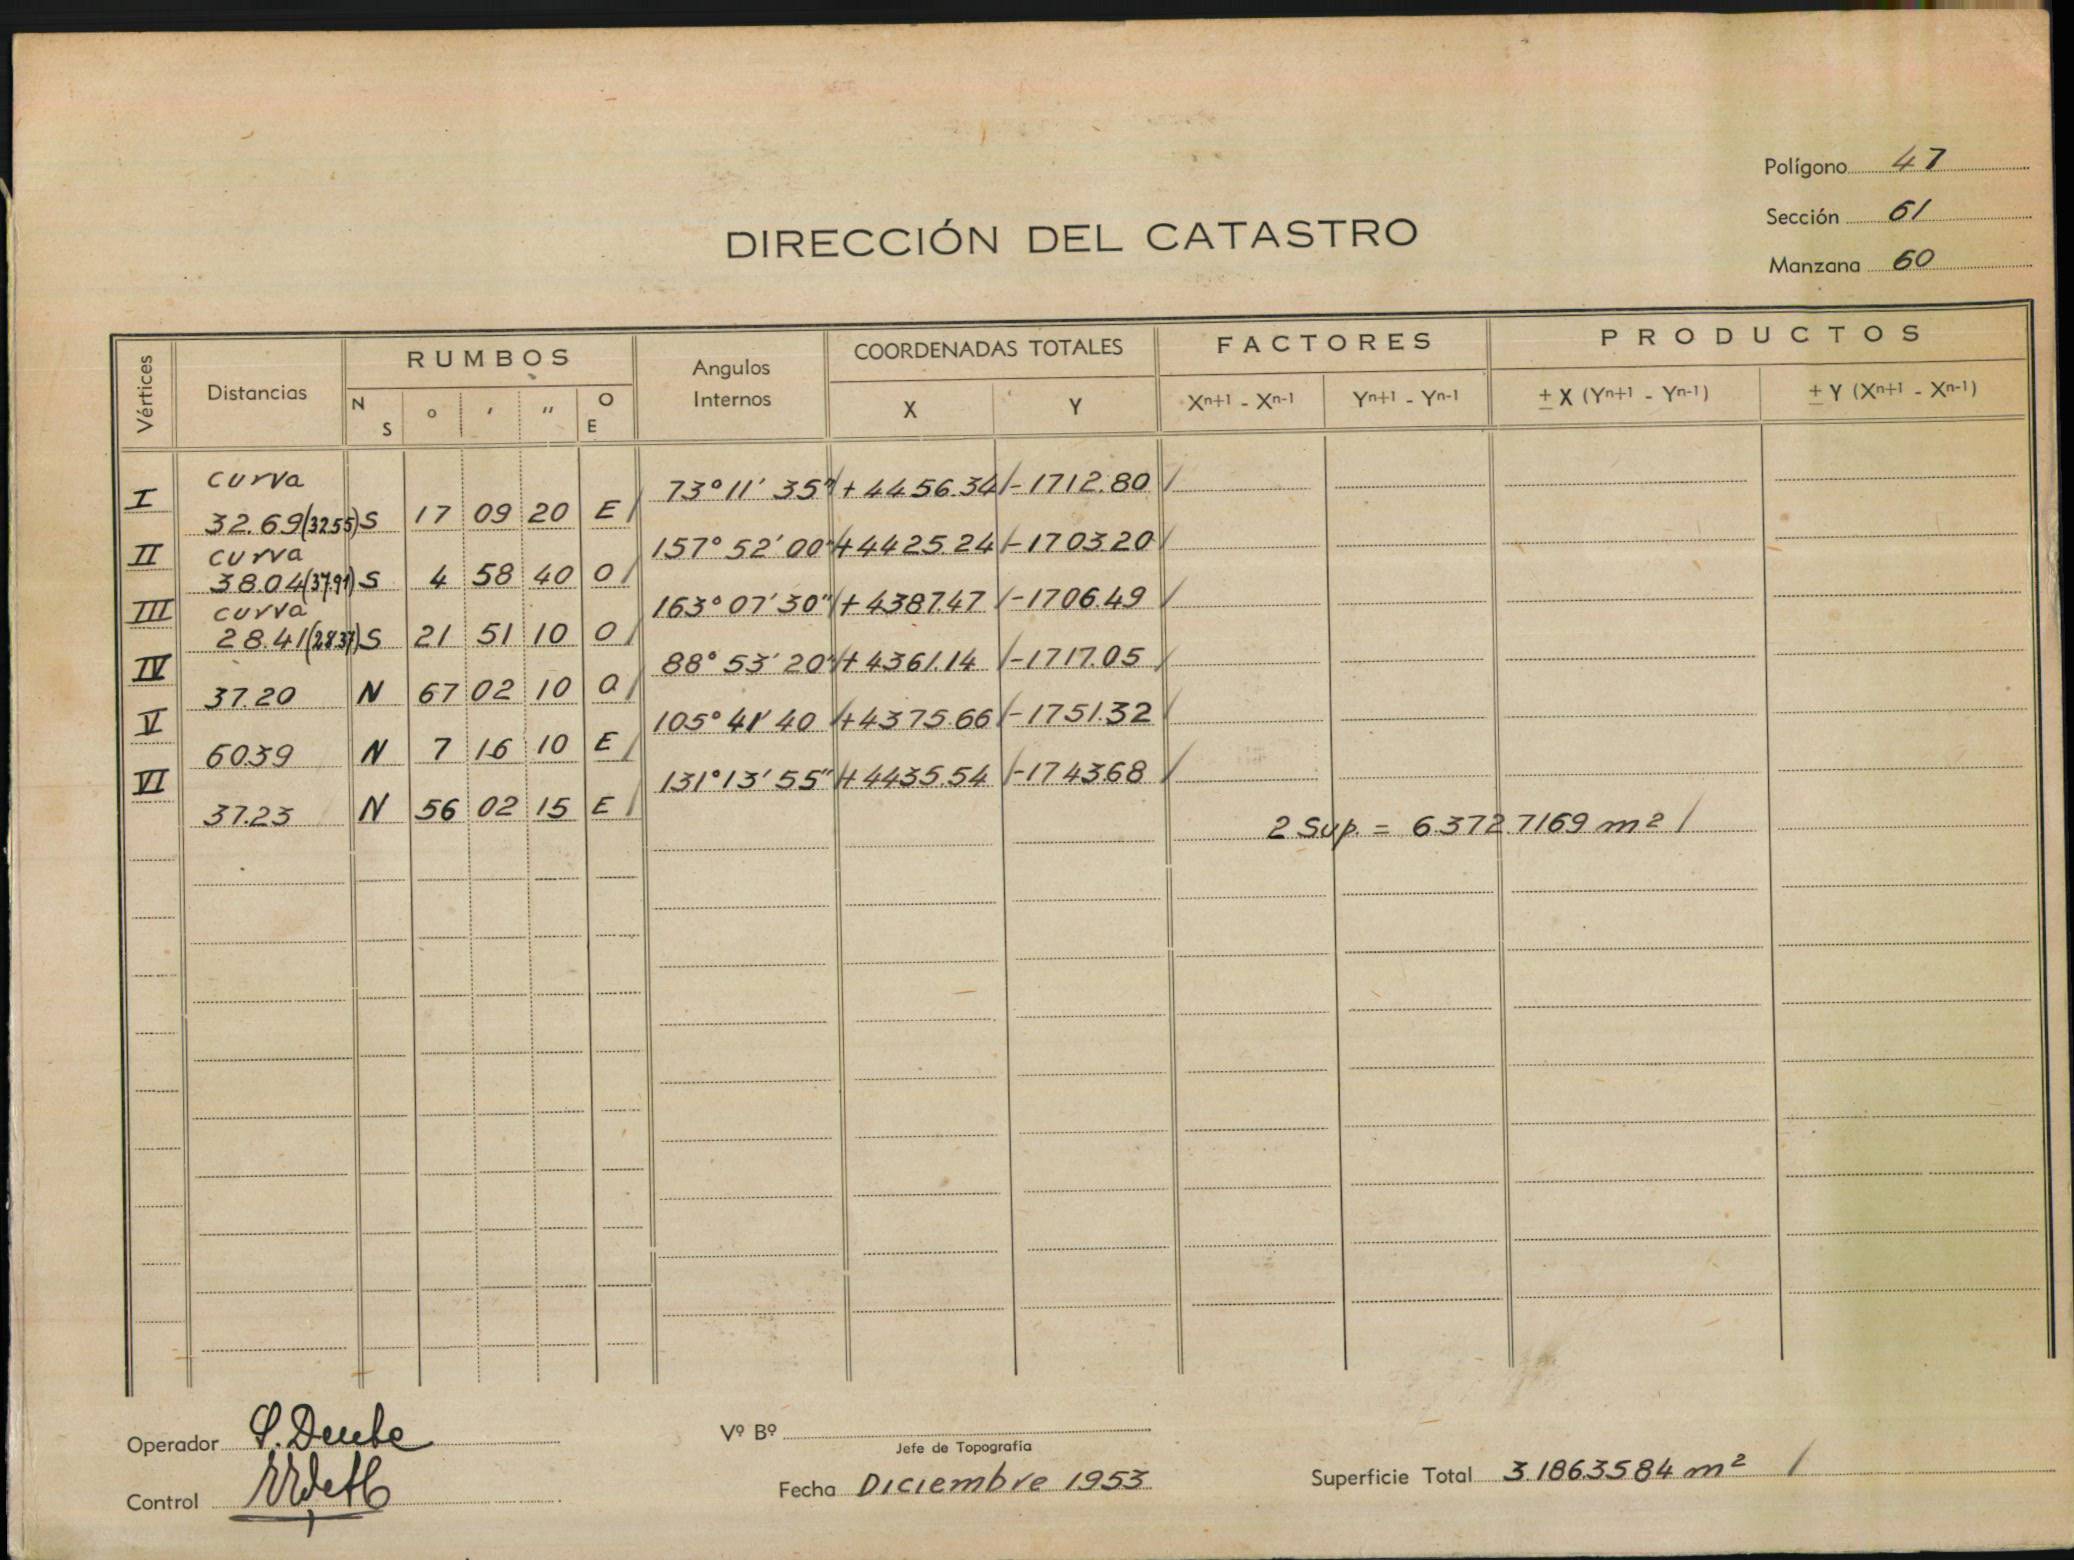 Polígono 47
Sección 61
Manzana 60
DIRECCIÓN DEL CATASTRO
Vértices Distancias RUMBOS Angulos Internos COORDENADAS TOTALES FACTORES PRODUCTOS
N S ° ' " O E X Y Xⁿ⁺¹ - Xⁿ⁻¹ Yⁿ⁺¹ - Yⁿ⁻¹ ± X (Yⁿ⁺¹ - Yⁿ⁻¹) ± Y (Xⁿ⁺¹ - Xⁿ⁻¹)
I curva 73° 11' 35" +4456.34 -1712.80
32.69 (32.55) S 17 09 20 E
II curva 157° 52' 00" +4425.24 -1703.20
38.04 (37.91) S 4 58 40 O
III curva 163° 07' 30" +4387.47 -1706.49
28.41 (28.37) S 21 51 10 O
IV 88° 53' 20" +4361.14 -1717.05
37.20 N 67 02 10 O
V 105° 41' 40 +4375.66 -1751.32
60.39 N 7 16 10 E
VI 131° 13' 55" +4435.54 -1743.68
37.23 N 56 02 15 E
2 Sup. = 6.372.7169 m²
Operador
Control
Vº Bº
Jefe de Topografía
Fecha Diciembre 1953
Superficie Total 3.186.3584 m²